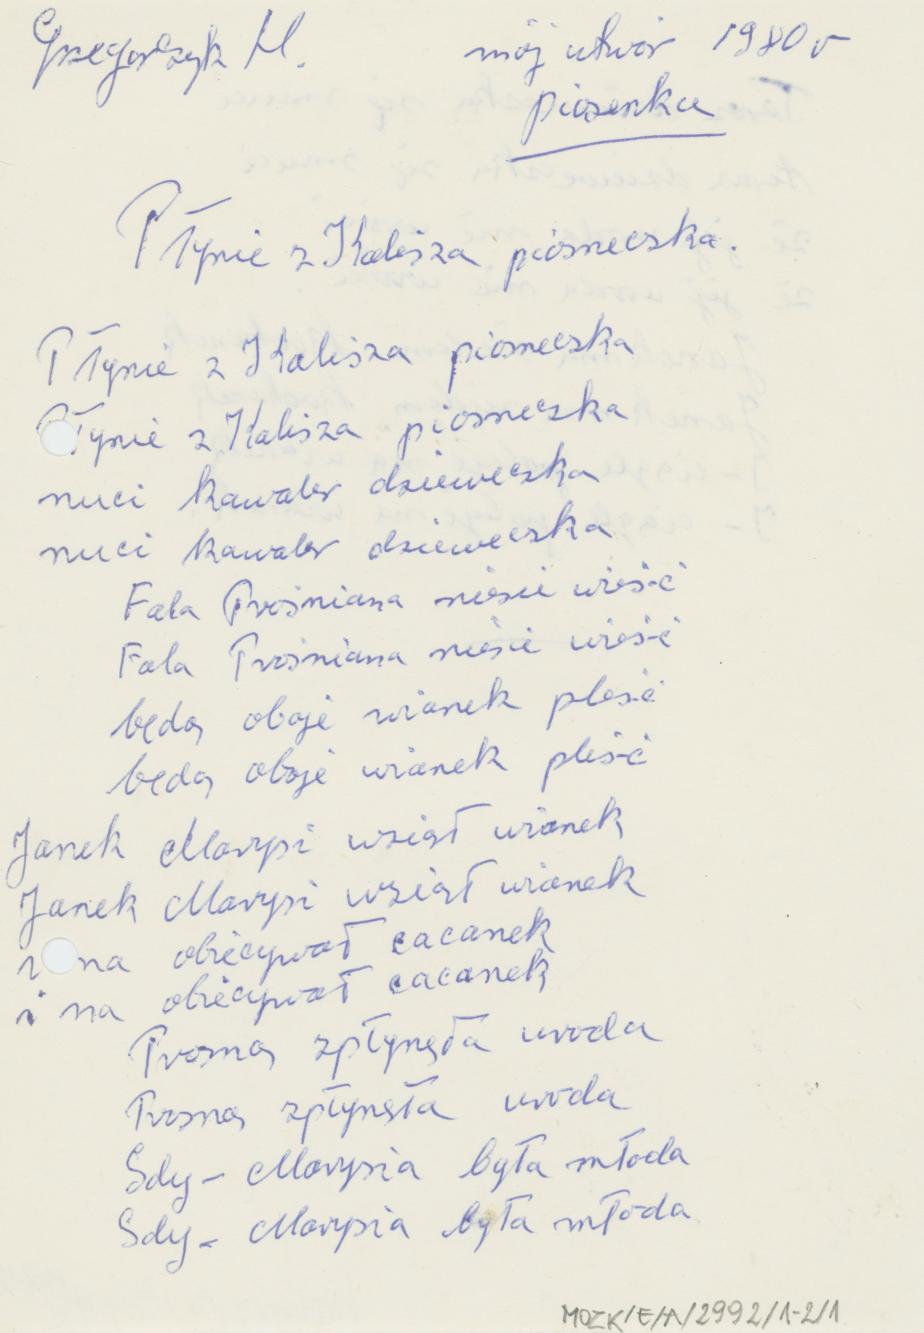 Grzegorczyk M. mój utwór 1980 r
piosenka
Płynie z Kalisza piosneczka.
Płynie z Kalisza piosneczka
Płynie z Kalisza piosneczka
nuci kawaler dzieweczka
nuci kawaler dzieweczka
Fala Prośniana niesie wieść
Fala Prośniana niesie wieść
będą oboje wianek pleść
będą oboje wianek pleść
Janek Marysi wziął wianek
Janek Marysi wziął wianek
i na obiecywał cacanek
i na obiecywał cacanek
Prosną zpłynęła uroda
Prosną zpłynęła uroda
Gdy - Marysia była młoda
Gdy - Marysia była młoda
MOZK/E/A/2992/1-2/1